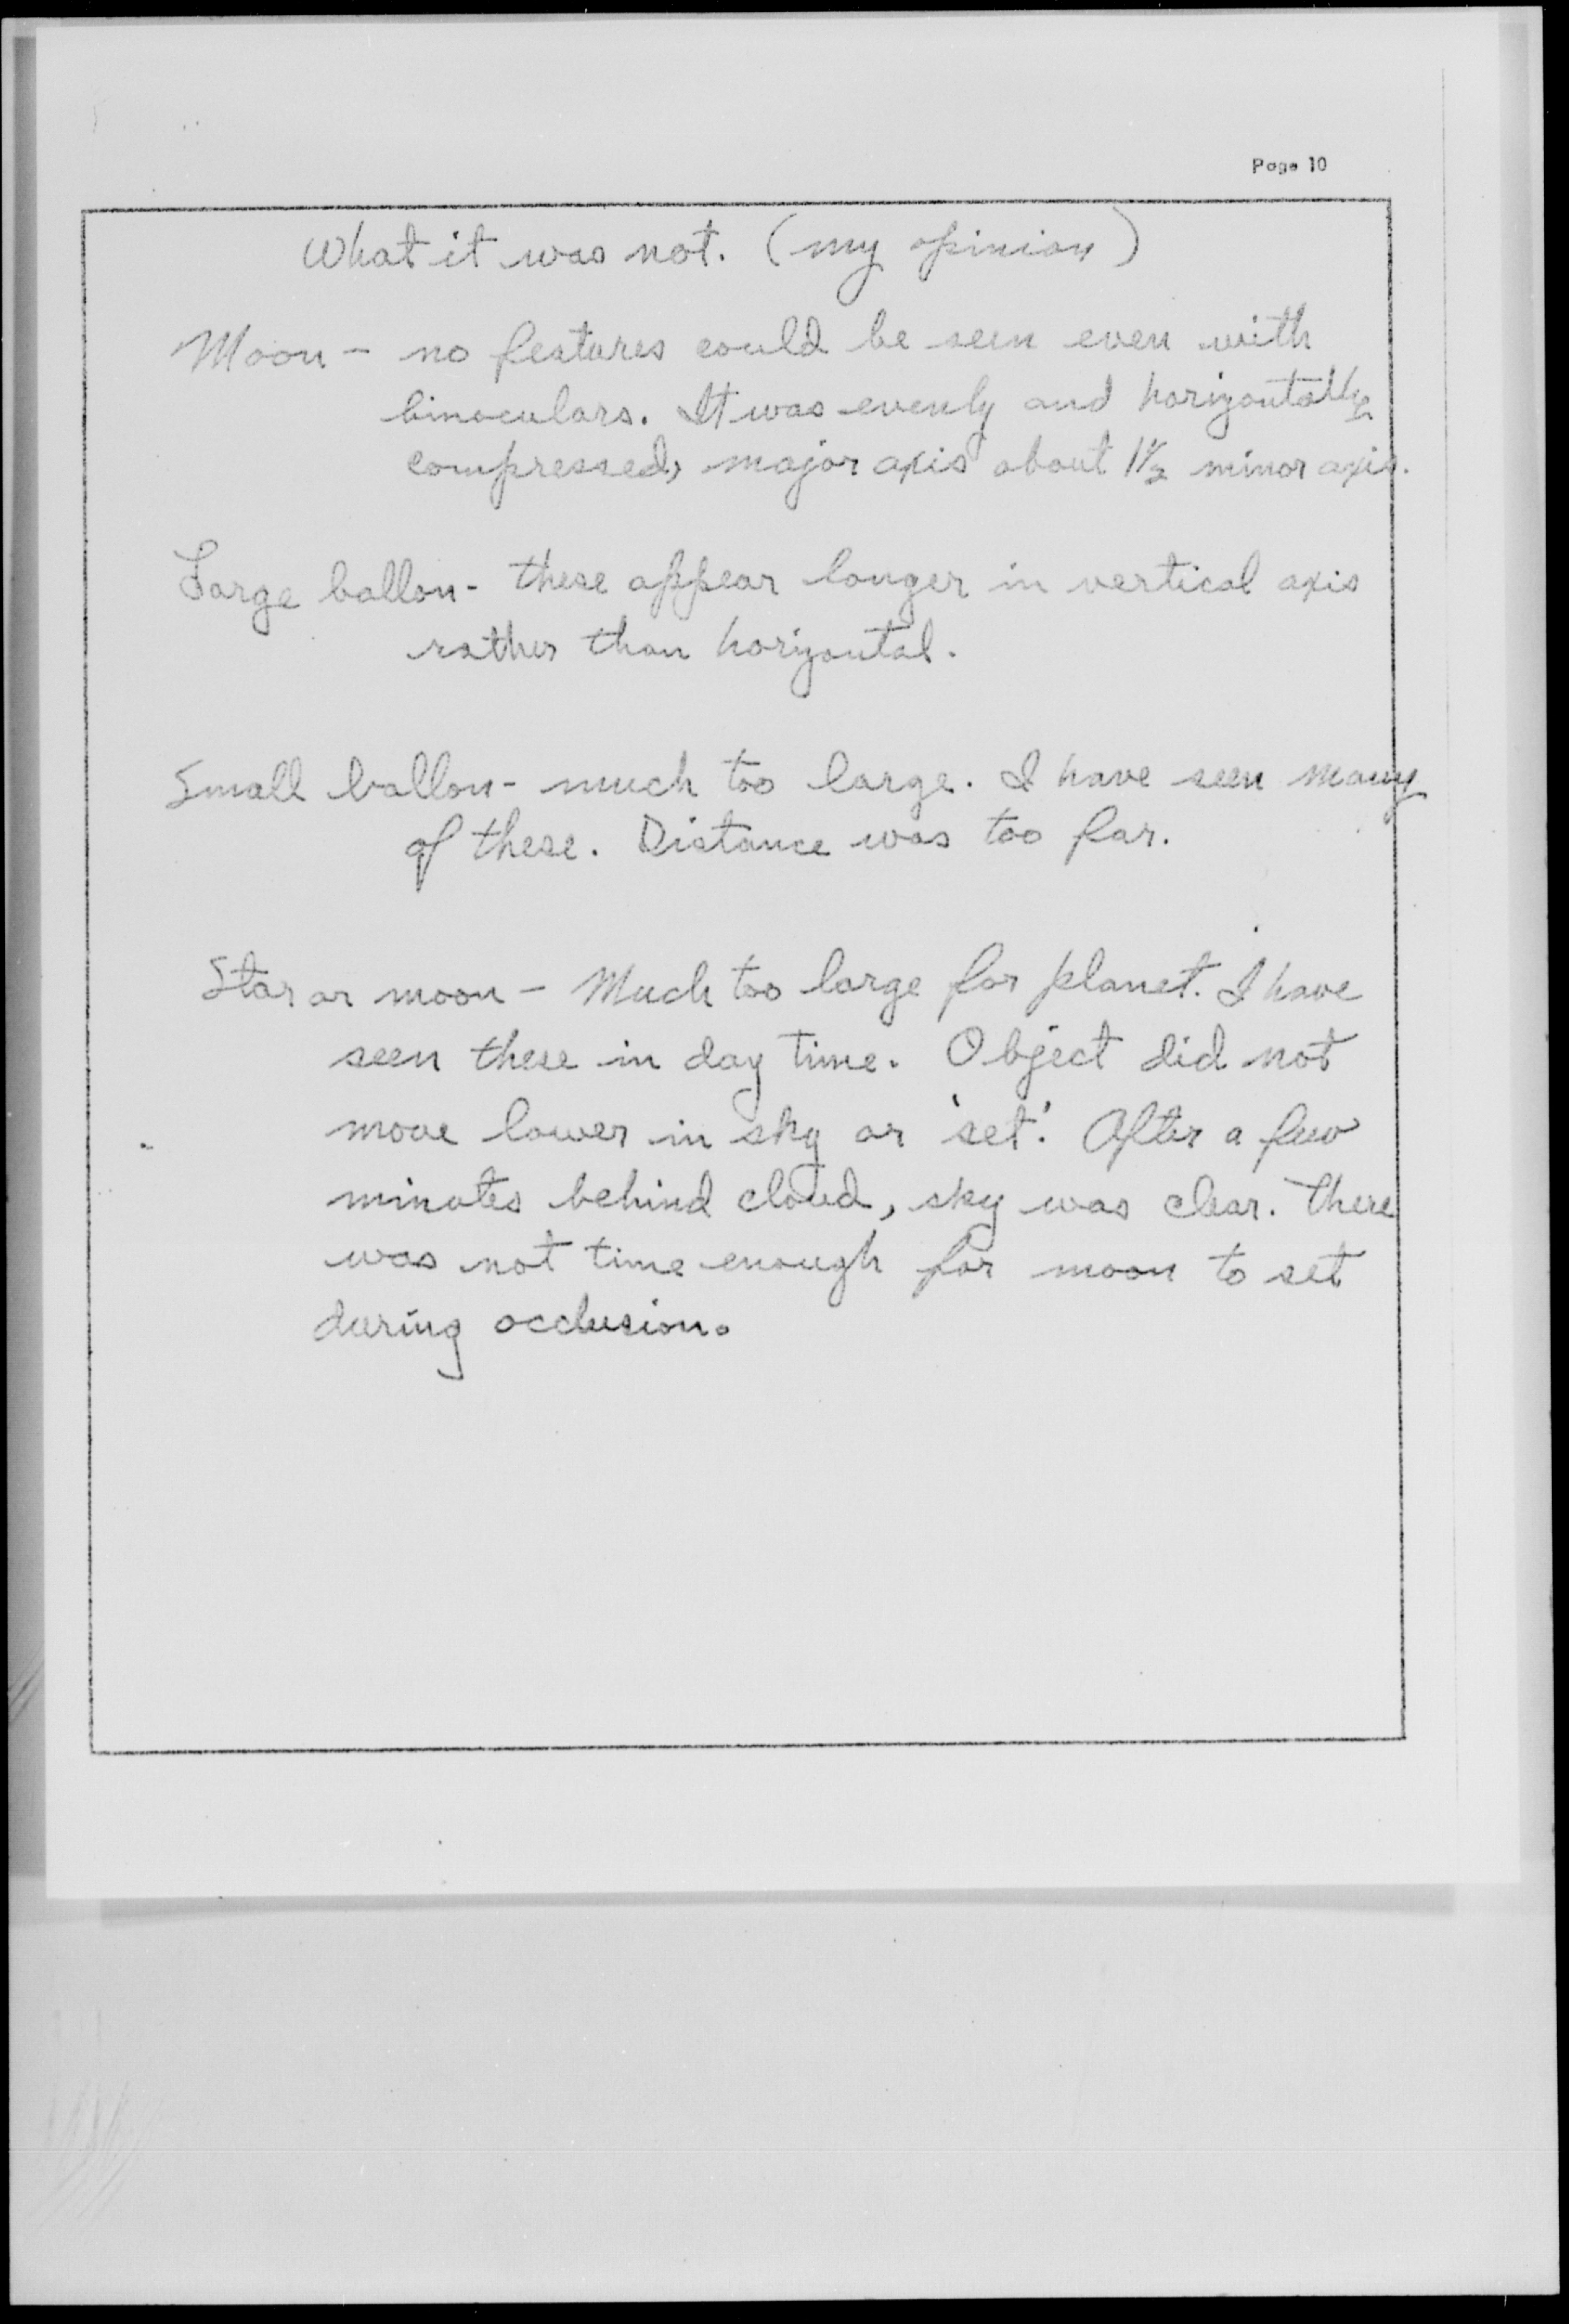 Page 10
What it was not. (my opinion)
Moon - no features could be seen even with
binoculars. It was evenly and horizontally
compressed, major axis about 1½ minor axis.
Large ballon - these appear longer in vertical axis
rather than horizontal.
Small ballon - much too large. I have seen many
of these. Distance was too far.
Star or moon - Much too large for planet. I have
seen these in day time. Object did not
move lower in sky or 'set'. After a few
minutes behind cloud, sky was clear. There
was not time enough for moon to set
during occlusion.